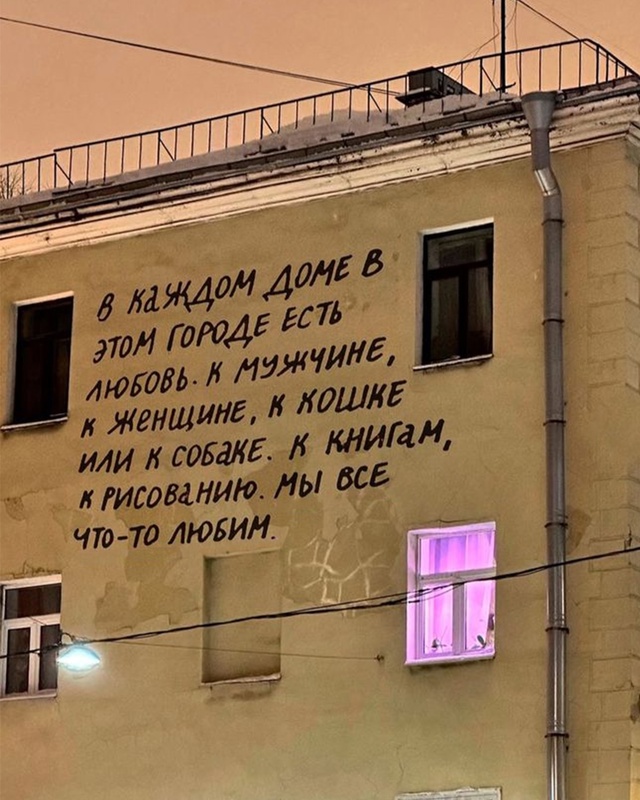 В каждом доме в
этом городе есть
любовь. К мужчине,
к женщине, к кошке
или к собаке. К книгам,
к рисованию. Мы все
что-то любим.